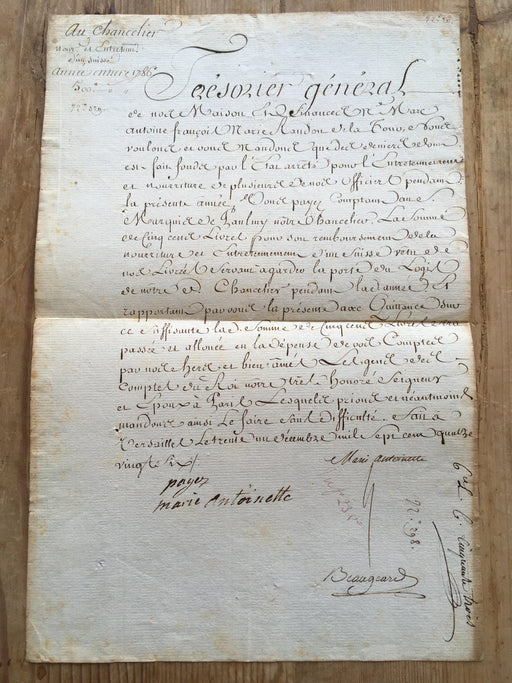 Au Chancelier
Nour. et Entretenm.
d'un suisse
Année entière 1786
500
Trésorier général
de nostre Maison et finances Me. Marc
Antoine françois Marie Randon de la Tour, Nous
voulons et vous mandons que des deniers de
fait fonds par l'Etat arrêté pour l'Entretenement
et nourriture de plusieurs de nos Officiers pendant
la présente année Vous payez Comptant au S.
Marquis de Paulmy notre Chancelier, La somme
de Cinq cens Livres pour son remboursement de la
nourriture et Entretenement d'un Suisse vêtu de
nos Livrées servant à garder la porte du Logis
de notre dit Chancelier pendant la de. année Et
rapportant par vous la présente avec Quittance sur
ce suffisante lad. Somme de Cinq cens Livres sera
passée et allouée en la dépense de vos Comptes
par nos chers et bien amés Les gens des
Comptes du Roi notre très honoré Seigneur
et Epoux à Paris Lesquels prions et néantmoins
mandons ainsi Le faire sans difficulté. Fait à
Versailles Le trente un décembre mil Sept cens quatre
vingt six
Marie antoinette
payez
marie antoinette
92e. 298.
Beaugeard
6el. C. Cinquante trois